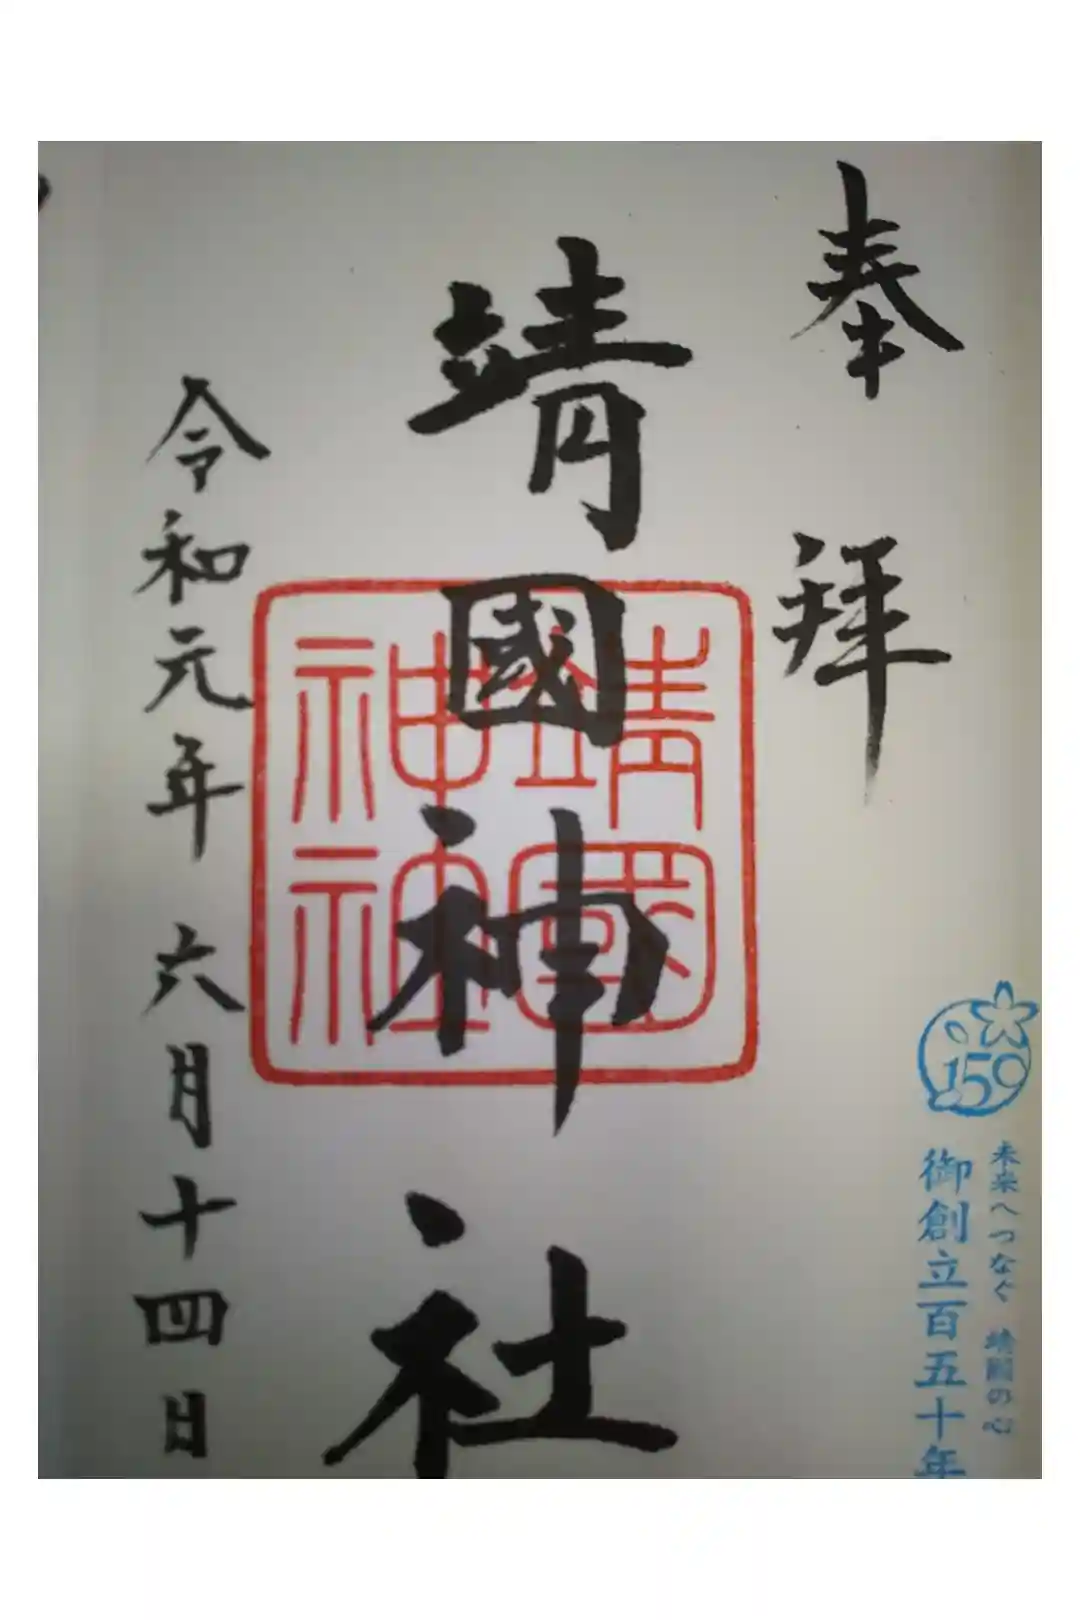 奉拝
靖國神社
令和元年六月十四日
靖國神社
150
未来へつなぐ 靖國の心
御創立百五十年